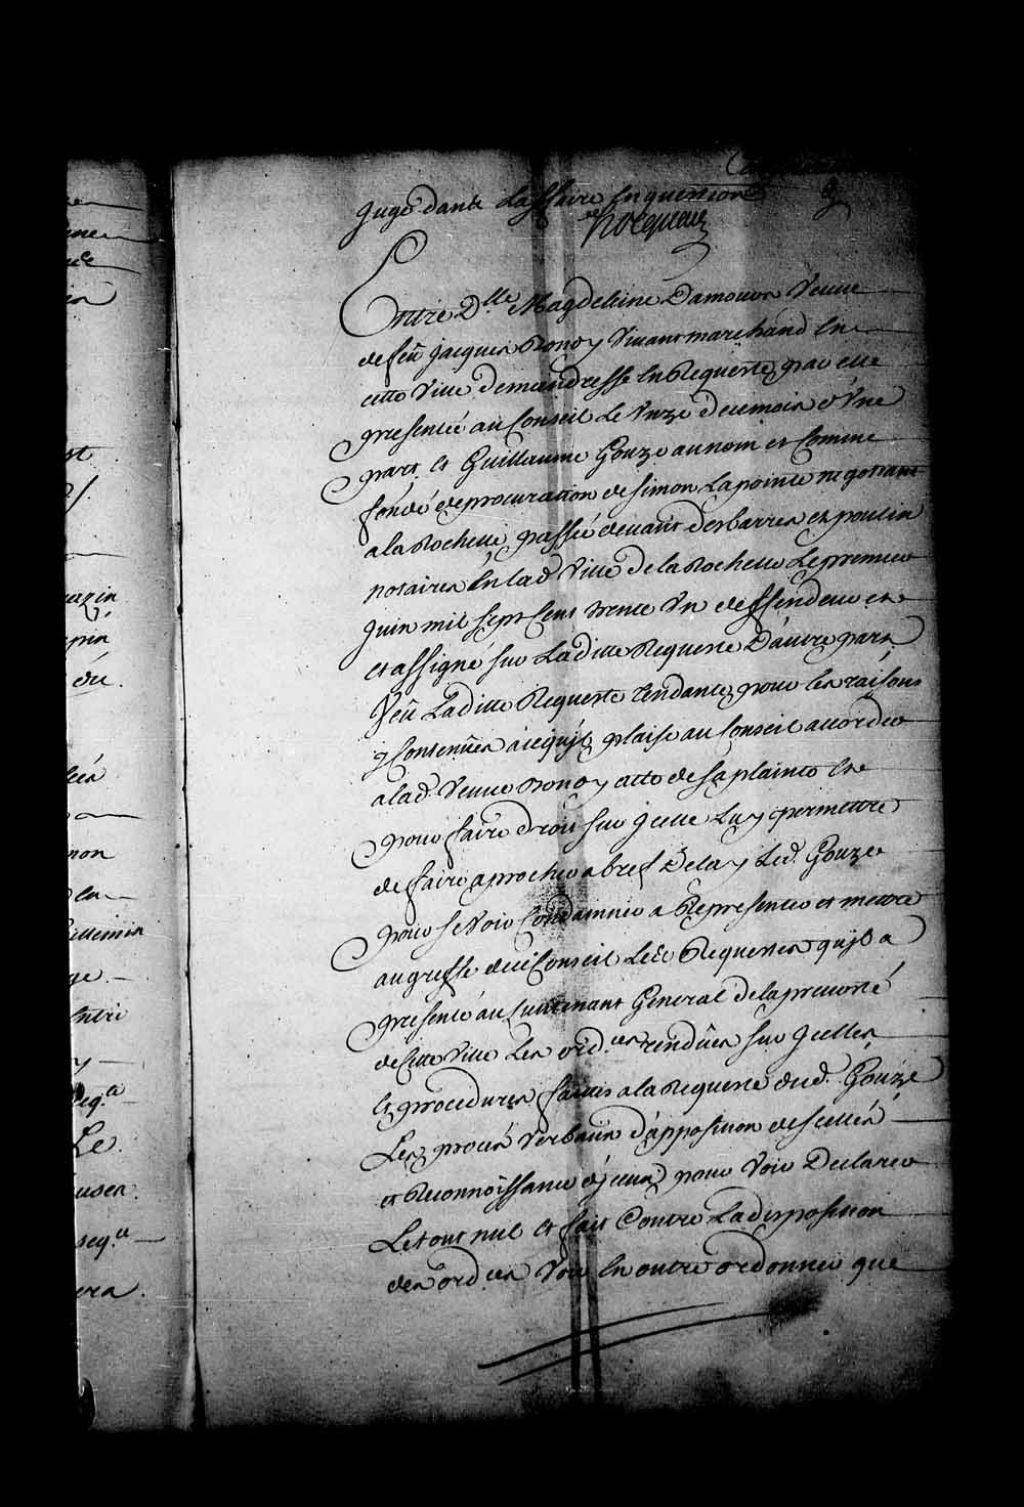 jugé dans Laffaire En question
hocquart
Entre D.lle Magdeleine Damours Veuve
de feu jacques Bonoy Vivant marchand En
cette Ville demandresse En Requeste par elle
presentée au Conseil Le Unze de ce mois d'Une
part Et Guillaume Gouze au nom et Comme
fondé de procuration de simon Lapointe negotiant
a la Rochelle, passée devant desbarres et poulin
notaires En lad. Ville de la Rochelle Le premier
juin mil sept cent trente Un deffendeur et
et assigné sur Ladite Requeste D'autre part,
Veu Ladite Requeste tendante, pour les raisons
y Contenües a ce qu'jl plaise au Conseil accorder
a lad. Veuve Bonoy acte de sa plainte Et
pour faire droit sur jcelle Luy permettre
de faire aprocher a bref Delay Led. Gouze
pour se Voir Condamner a Representer et mettre
au greffe de ce Conseil Les Requestes qu'jl a
presenté au Lieutenant General de la prevosté
de Cette Ville Les ord.ces rendües sur jcelles,
Les procedures faites a la Requeste dud. Gouze
Les procés Verbaux d'apposition de scellés
et Reconnoissance d'jceux, pour Voir Declarer
Le tout nul Et fait Contre La disposition
des ord.ces Voir En outre ordonner que
mon
St
du.
ge.
Entre
Le.